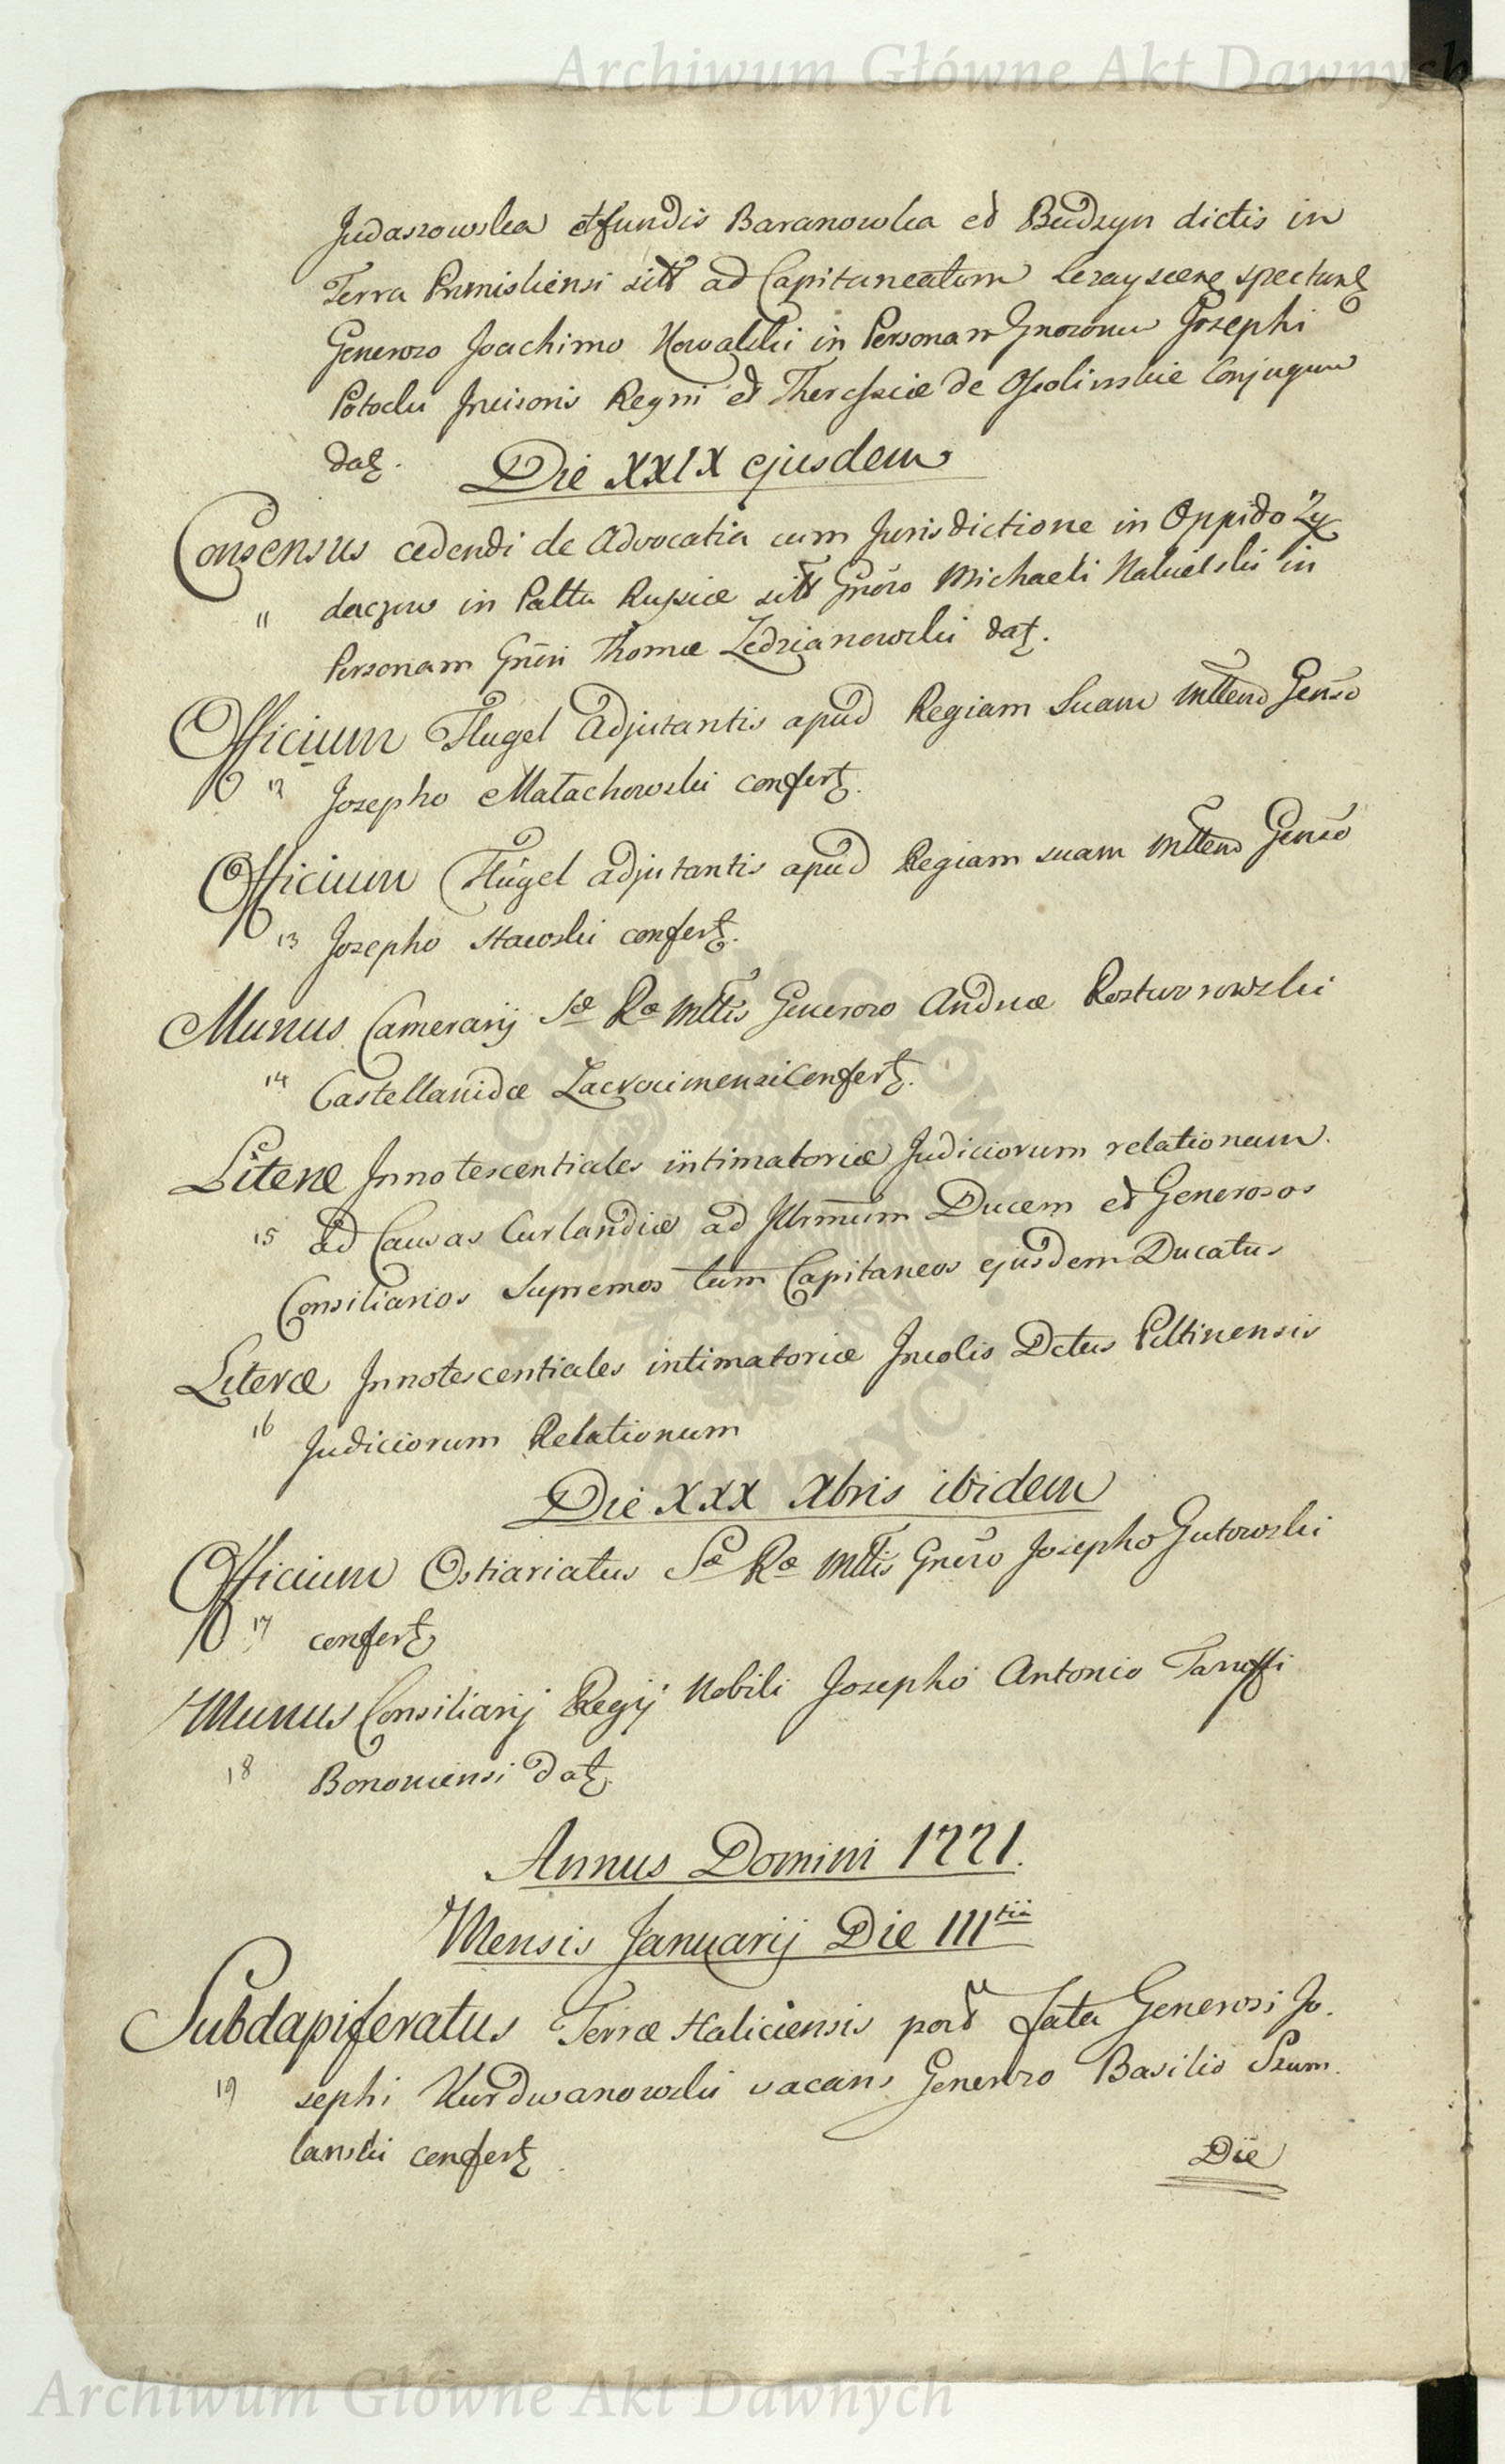 Archiwum Główne Akt Dawnych
Judaszowska et fundis Baranowka ed Budzyn dictis in
Terra Premisliensi sitt ad Capitaneatum Lezayscens spectant
Generoso Joachimo Kowalski in Personam Gnosorum Josephi
Potocki Incisoris Regni et Theressiæ de Ossolinskie Conjugum
dat.
Die XXIX ejusdem
Consensus cedendi de Advocatia cum Jurisdictione in Oppido Zy
11 daczow in Palttu Russiæ sitt Gnero Michaeli Nakielski in
Personam Gneri Thomæ Zedzianowski dat.
Officium Flugel Adjutantis apud Regiam Suam Mttem Genso
12 Josepho Małachowski confert.
Officium Flügel adjutantis apud Regiam suam Mttem Genso
13 Josepho Stawski confert.
Munus Camerarij Sæ Ræ Mttis Generoso Andreæ Roztworowski
14 Castellanidæ Zacrocimensi Confert.
Literæ Innotescentiales intimatoriæ Judiciorum relationum.
15 ad Causas Curlandiæ ad Illrmum Ducem et Generosos
Consiliarios Supremos tum Capitaneos ejusdem Ducatus
Literæ Innotescentiales intimatoriæ Incolis Dctus Piltinensis
16 Judiciorum Relationum
Die XXX Xbris ibidem
Officium Ostiariatus Sæ Ræ Mttis Gnero Josepho Gutowski
17 confert
Munus Consiliarij Regij Nobili Josepho Antonio Taruffi
18 Bononiensi dat.
Annus Domini 1771.
Mensis Januarij Die III tia
Subdapiferatus Terræ Haliciensis post fata Generosi Jo.
19 sephi Kurdwanowski vacans Generoso Basilio Szum.
lanski confert
Die
Archiwum Główne Akt Dawnych